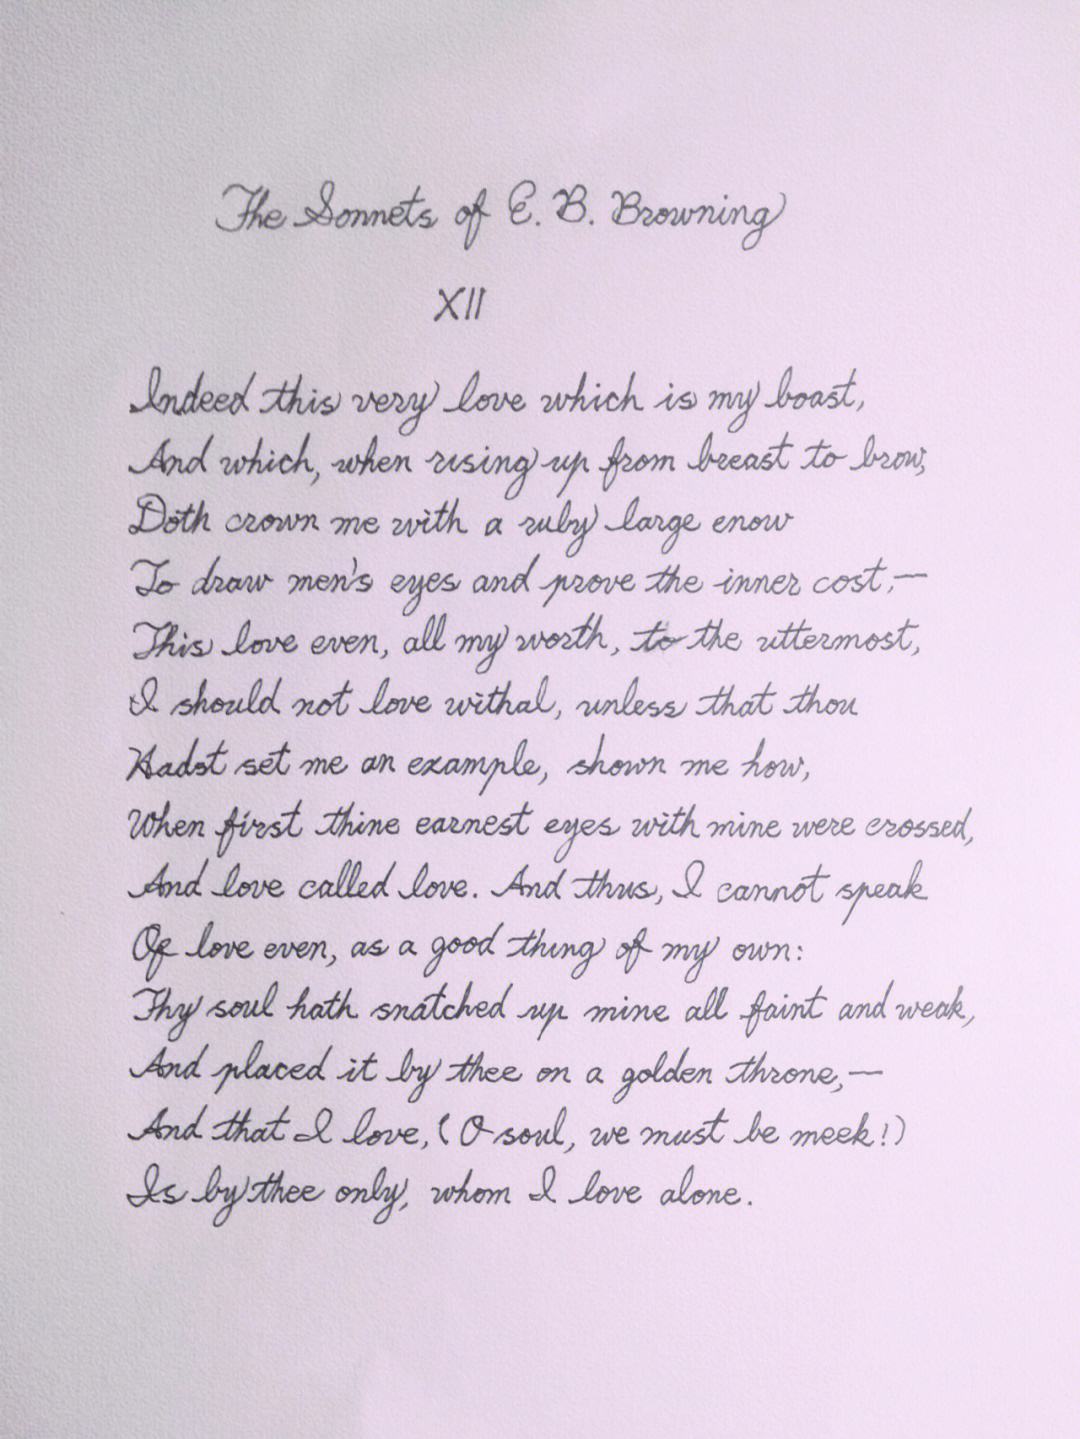 The Sonnets of E. B. Browning
XII
Indeed this very love which is my boast,
And which, when rising up from breast to brow,
Doth crown me with a ruby large enow
To draw men's eyes and prove the inner cost,—
This love even, all my worth, to the uttermost,
I should not love withal, unless that thou
Hadst set me an example, shown me how,
When first thine earnest eyes with mine were crossed,
And love called love. And thus, I cannot speak
Of love even, as a good thing of my own:
Thy soul hath snatched up mine all faint and weak,
And placed it by thee on a golden throne,—
And that I love, (O soul, we must be meek!)
Is by thee only, whom I love alone.